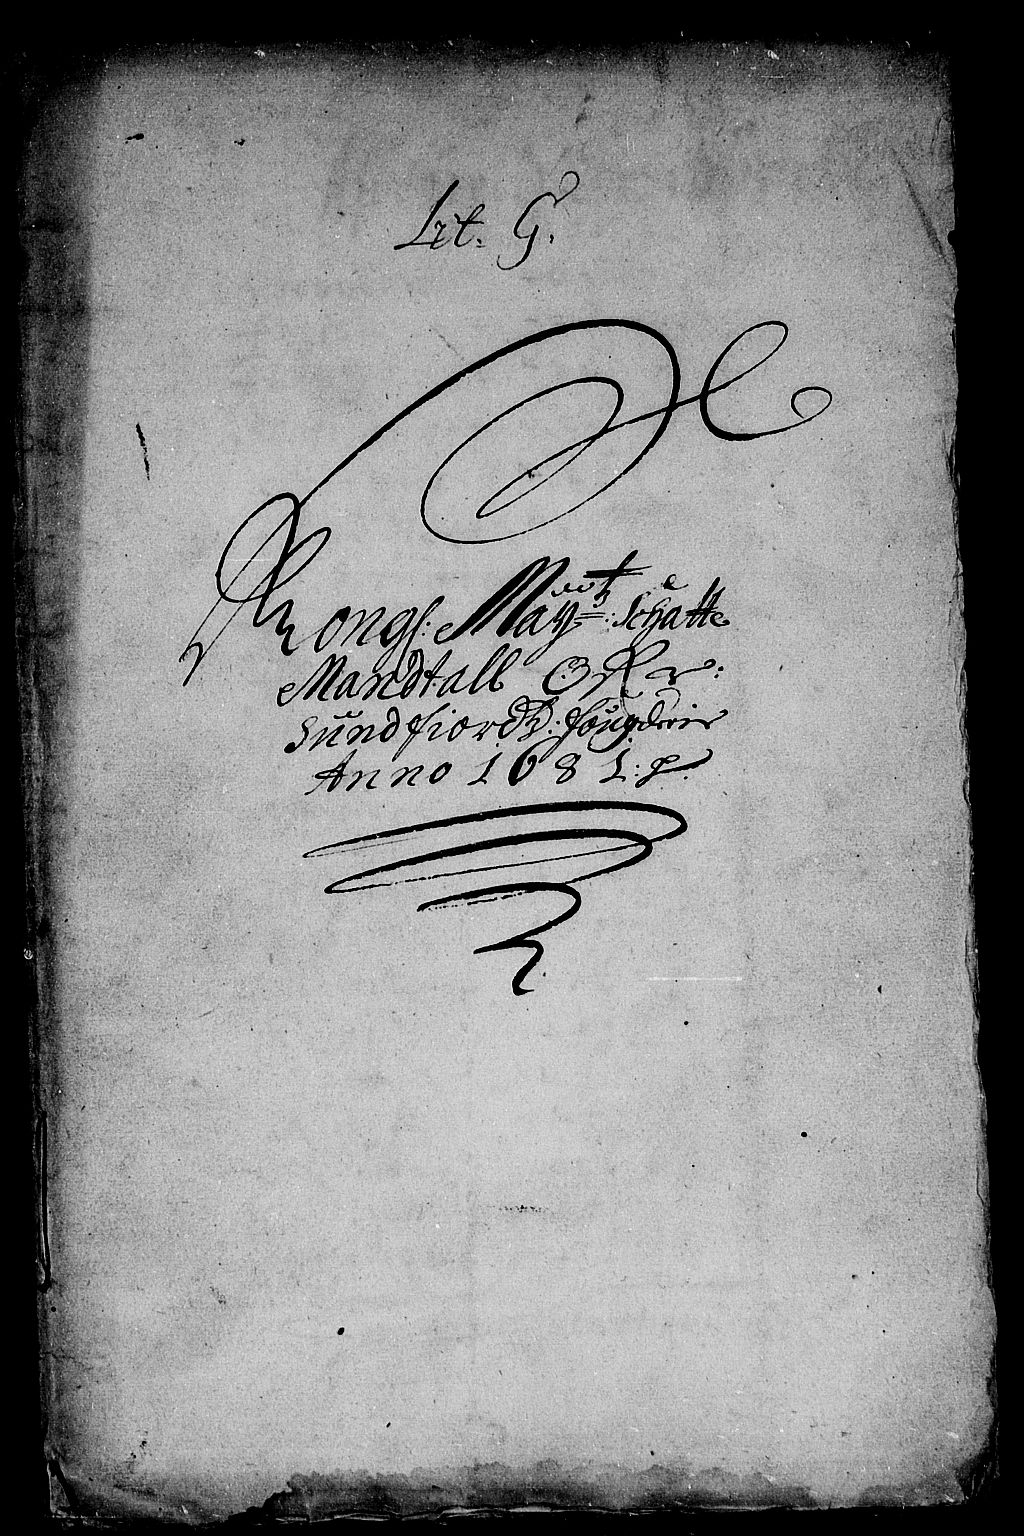 Lit. G.
Kongl: Maytz: Schatte
Mandtall Ofver:
Sundfiordtz: fougderie
Anno 1681: p.